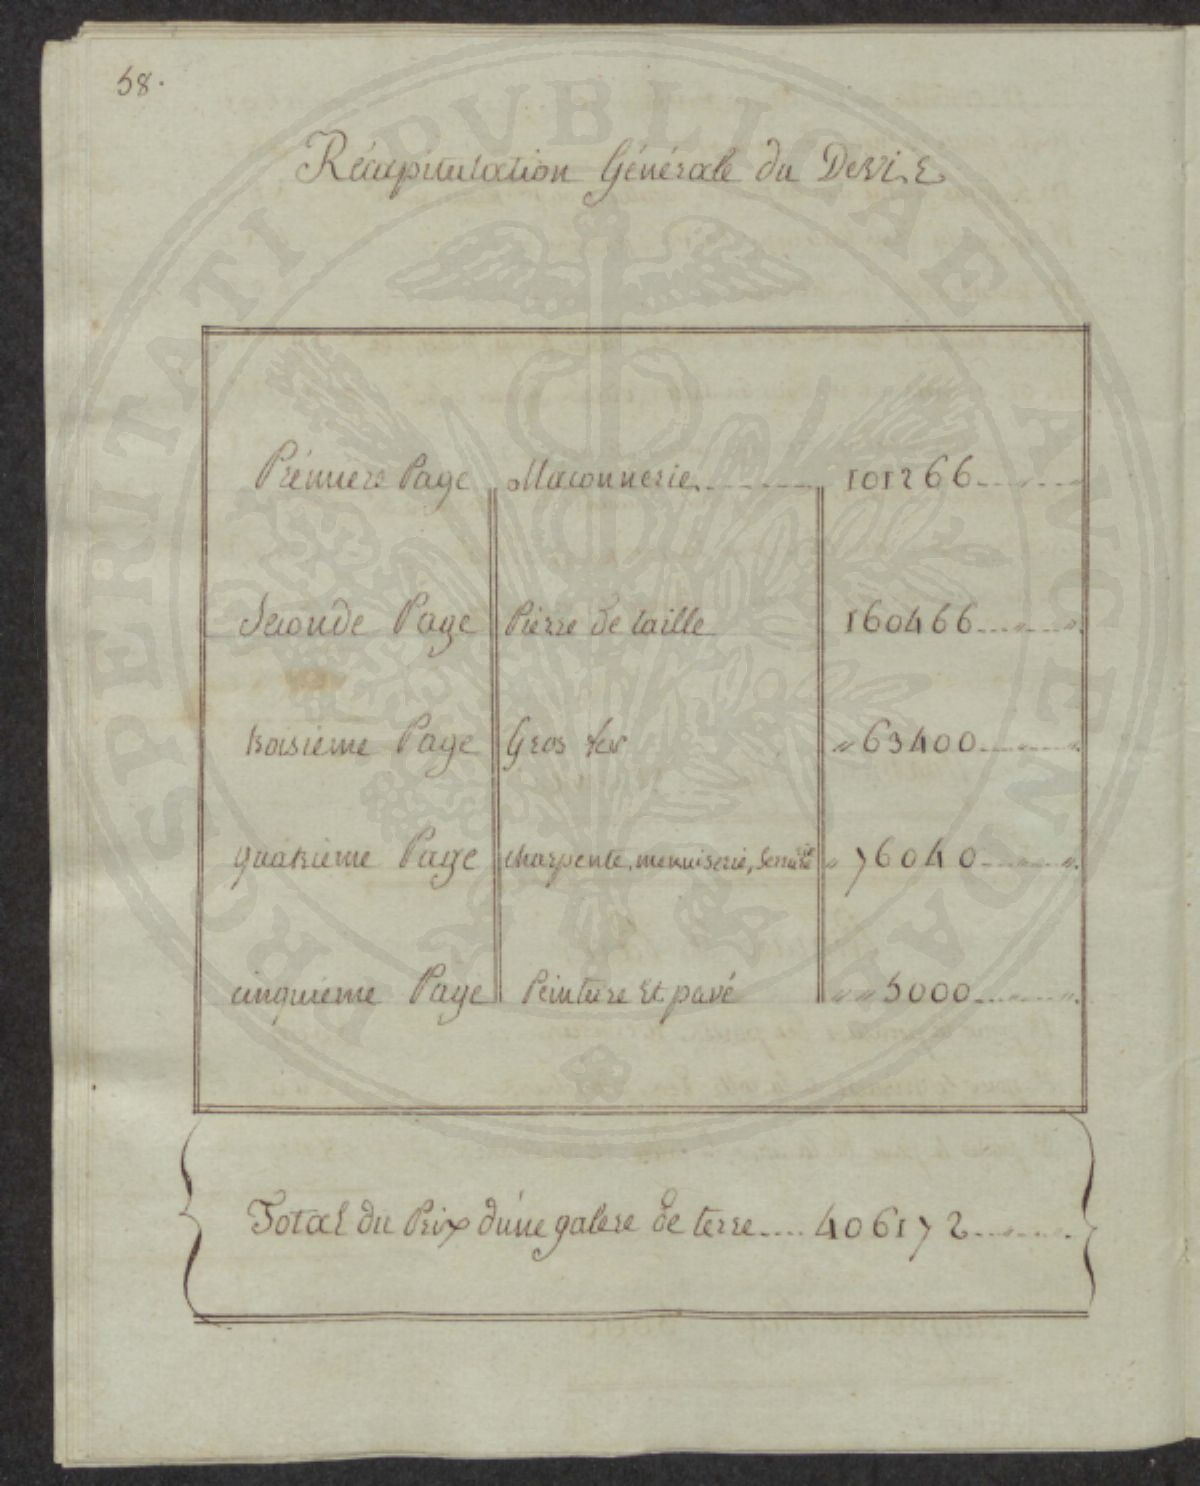 58.
Récapitulation Générale du Devis
Prémiere Page Maconnerie 101266
Seconde Page Pierre de taille 160466
troisieme Page Gros fer 〃 63400
quatrieme Page charpente, menuiserie, Serrurerie 〃 76040
cinquieme Page Peinture Et pavé 〃〃 5000
Total du Prix d'une galere de terre.... 406172
PROSPERITATI PVBLICAE AVGENDAE